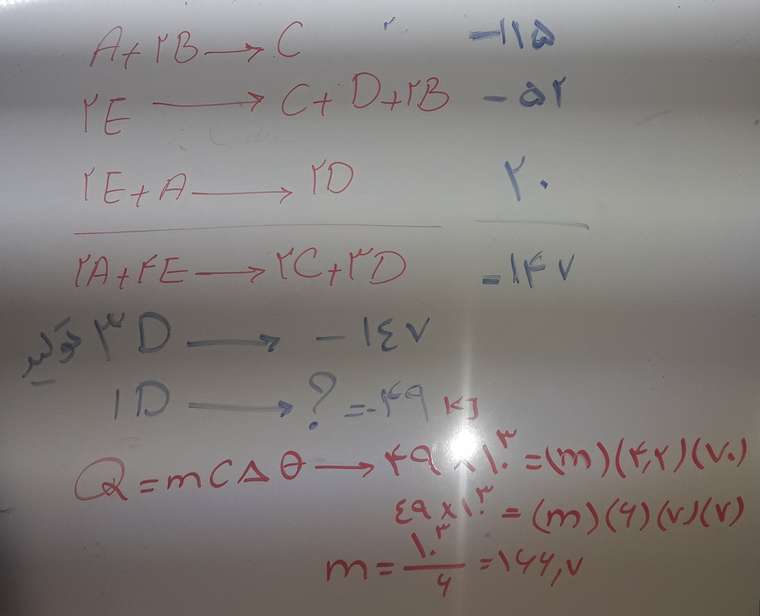 A + ۲B → C -۱۱۵
۲E → C + D + ۲B -۵۲
۲E + A → ۲D ۲۰
۲A + ۴E → ۲C + ۳D -۱۴۷
تولید ۳D → -۱٤۷
۱D → ? = -۴۹ KJ
Q = mCΔθ → ۴۹ × ۱۰^۳ = (m)(۴,۲)(۷۰)
٤۹ × ۱۰^۳ = (m)(۶)(۷)(۷)
m = ۱۰^۳ / ۶ = ۱۶۶,۷